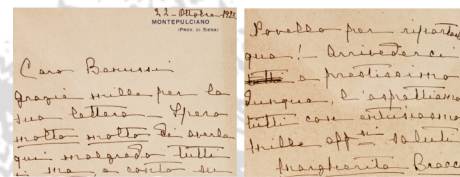 22 - Ottobre 1921
MONTEPULCIANO
(PROV. DI SIENA)
Caro Banussi
grazie mille per la
sua lettera - Spero
molto molto di averla
qui malgrado tutti
e ma a conto su
Povello per riportar
qua! Arrivederci
a prestissimo
dunque, l'aspettiamo
tutti con entusiasmo
mille aff.mi saluti
Margherita Bracci